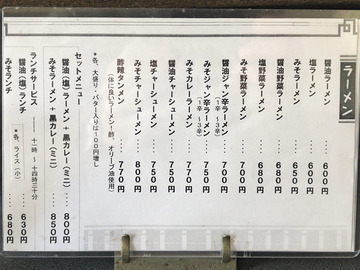 ラーメン
醤油ラーメン ・・・ 600円
塩ラーメン ・・・ 600円
みそラーメン ・・・ 650円
醤油野菜ラーメン ・・・ 680円
塩野菜ラーメン ・・・ 680円
みそ野菜ラーメン ・・・ 700円
醤油ジャン辛ラーメン ・・・ 700円
（1辛～3辛）
みそジャン辛ラーメン ・・・ 750円
（1辛～3辛）
みそカレーラーメン ・・・ 770円
醤油チャーシューメン ・・・ 750円
塩チャーシューメン ・・・ 750円
みそチャーシューメン ・・・ 800円
酢辣タンメン ・・・ 770円
（体に良いラーメン！酢、オリーブ油使用）
*各、大盛り・バター入りは100円増し
セットメニュー
醤油（塩）ラーメン＋黒カレー（ミニ） ・・・ 800円
みそラーメン＋黒カレー（ミニ） ・・・ 850円
ランチサービス ―― 十一時～十四時三十分
醤油（塩）ランチ ・・・ 630円
みそランチ ・・・ 680円
*各、ライス（小）